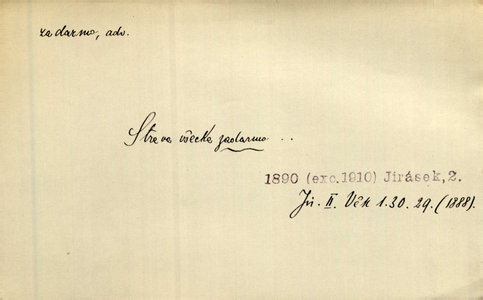 zadarmo, adv.
Strava všecka zadarmo ..
1890 (exc.1910) Jirásek,2.
Jir. II. Věk 1.30.29.(1888).